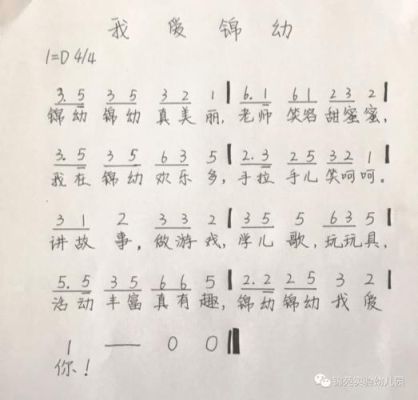 我爱锦幼
1=D 4/4
3. 5 3 5 3 2 1 | 6. 1 6 1 2 3 2 |
锦幼锦幼真美丽,老师笑容甜蜜蜜,
3. 5 3 5 6 3 5 | 2. 3 2 5 3 2 1 |
我在锦幼欢乐多,手拉手儿笑呵呵。
3 1 2 3 3 2 | 3 5 5 6 3 5 |
讲故事,做游戏,学儿歌,玩玩具,
5. 5 3 5 6 6 5 | 2. 2 2 5 3 2 |
活动丰富真有趣,锦幼锦幼我爱
1 — 0 0 ‖
你!
锦苑实验幼儿园